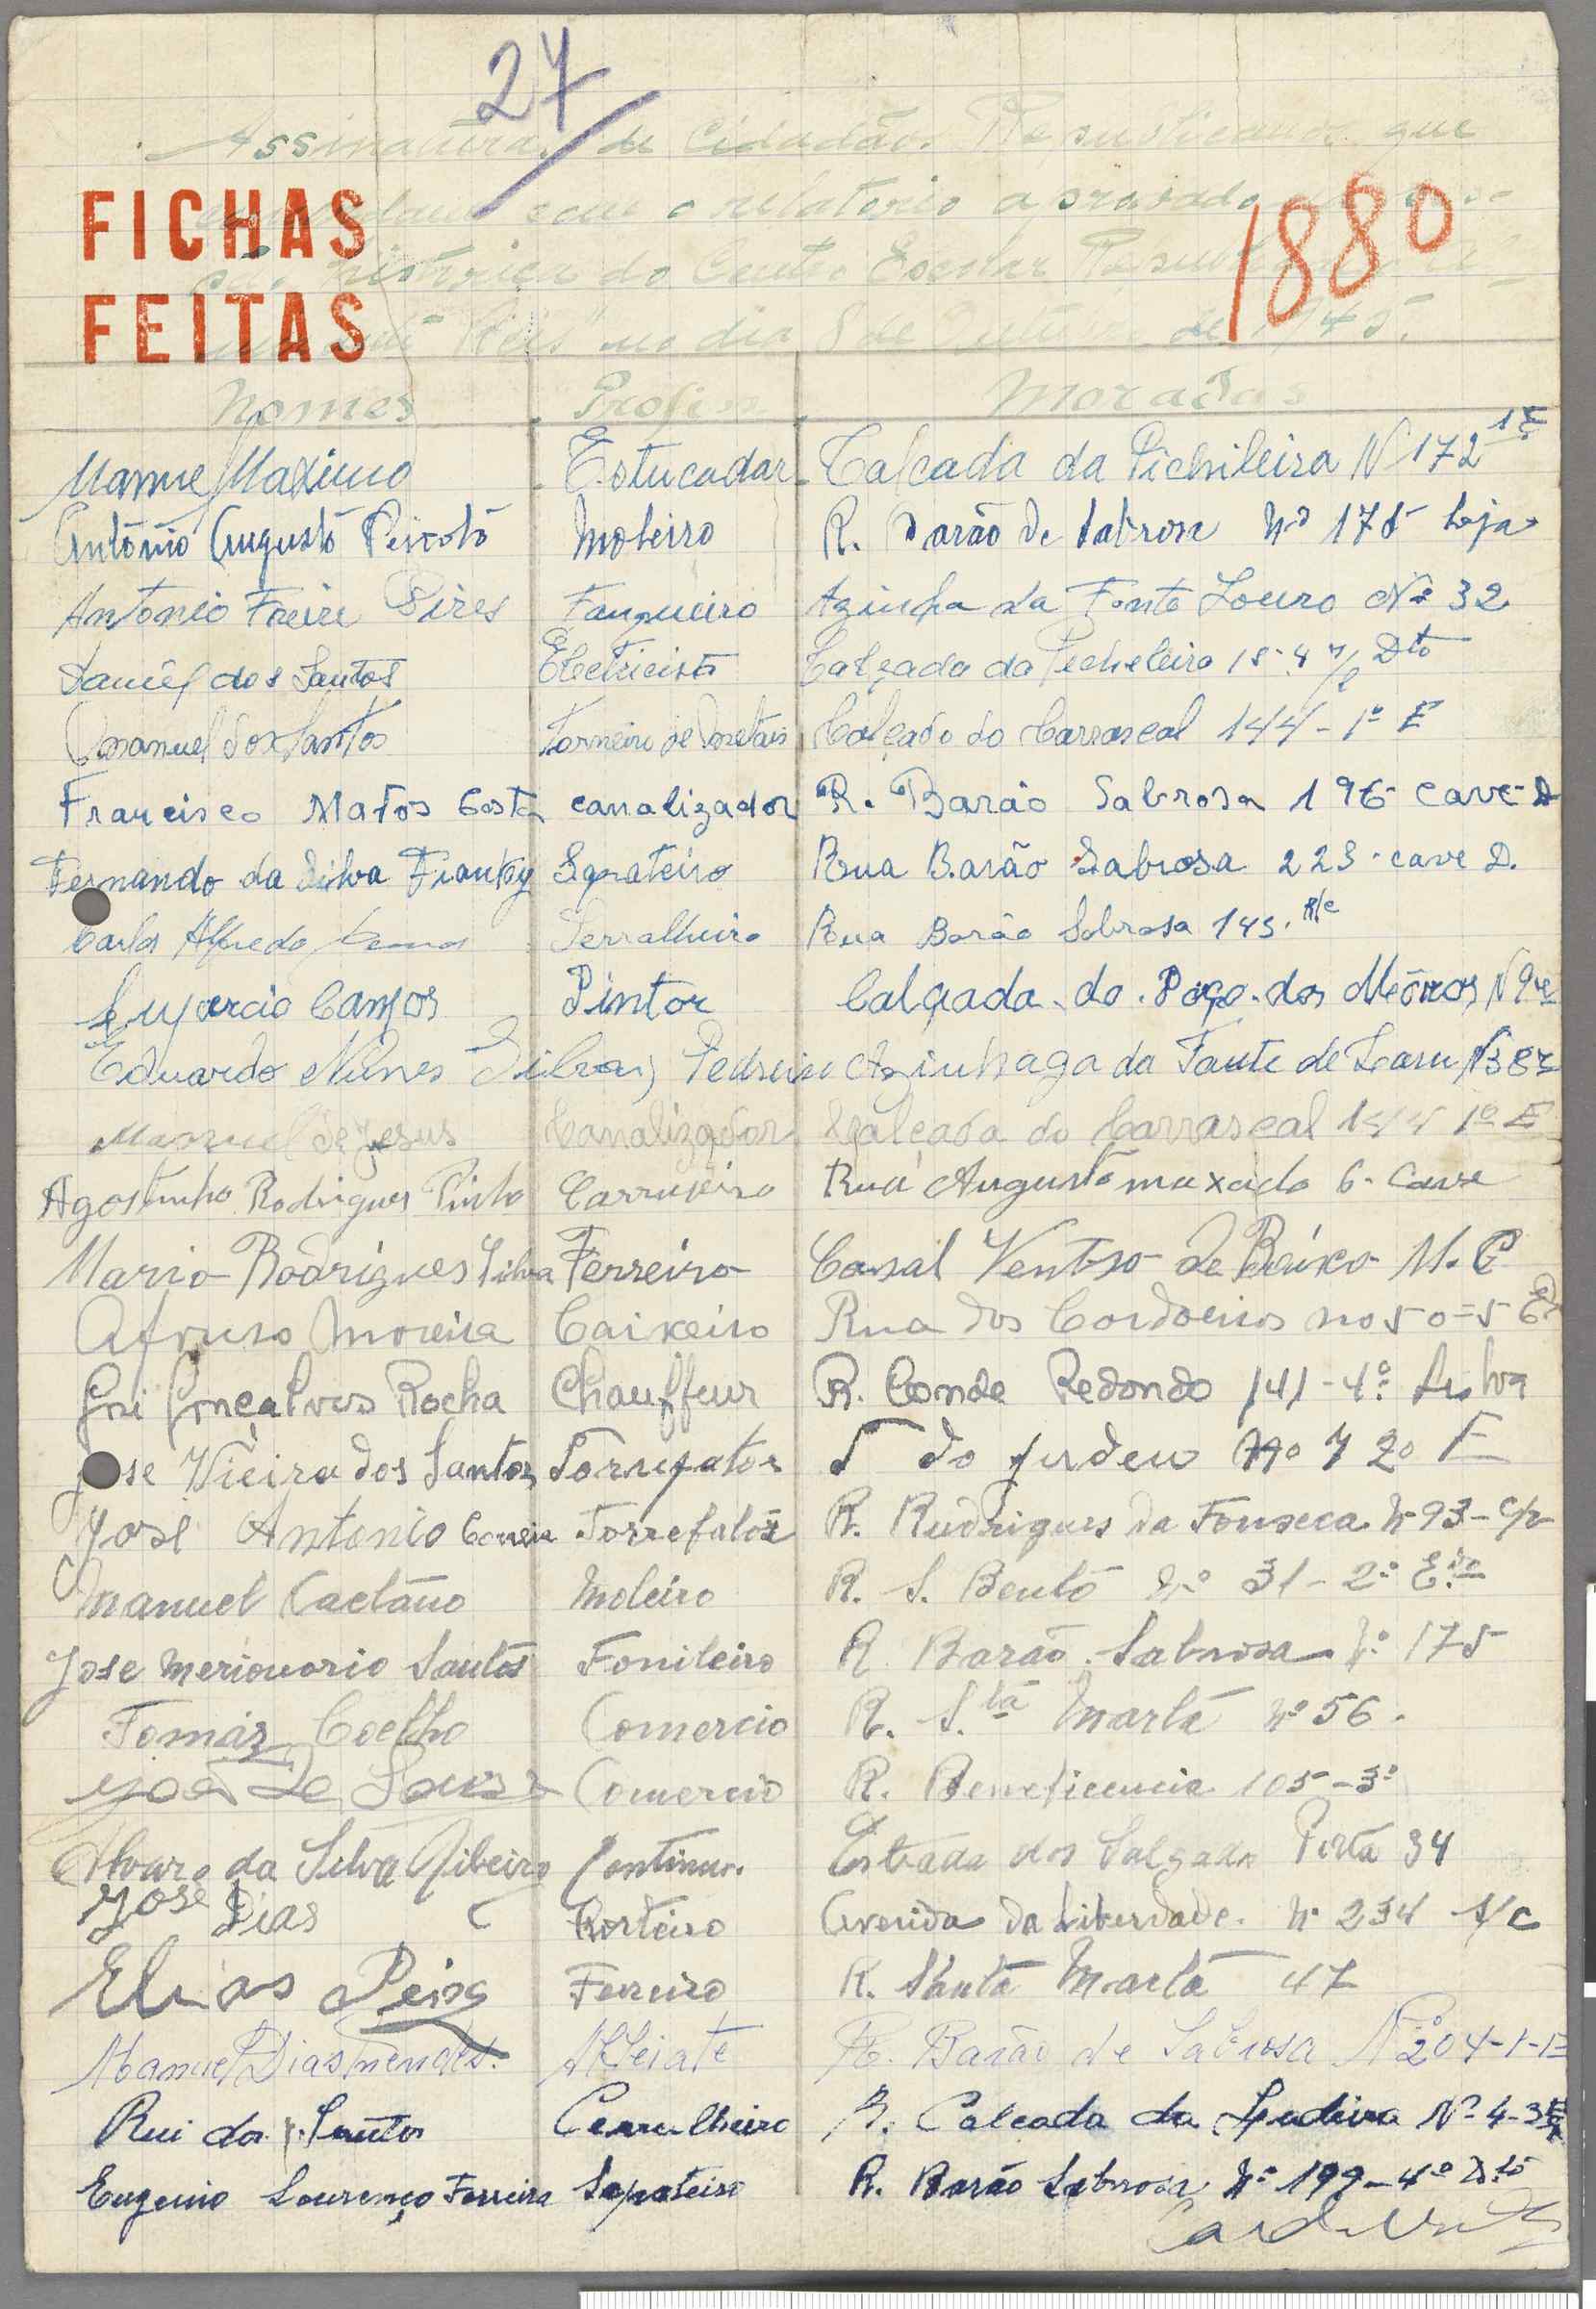 27
Assinaturas de Cidadãos Republicanos que
com o relatorio aprovado
historica do Centro Escolar
Reis" no dia 8 de Outubro de 1945.
FICHAS
FEITAS
1880
Nomes Profissão Moradas
Manuel Maximo Estucador Calcada da Pichileira Nº 172 1º E
António Augusto Peixoto Moleiro R. Barão de Sabrosa Nº 175 Loja
Antonio Freire Pires Fanqueiro Azinha da Fonte Louro Nº 32
Daniel dos Santos Electricista Calçada da Picheleira 15-4 Dto
Manuel dos Santos Torneiro de Metais Calçada do Carrascal 144-1º E
Francisco Matos Costa canalizador R. Barão Sabrosa 196 cave D
Fernando da Silva Sapateiro Rua Barão Sabrosa 223-cave D.
Carlos Alfredo Serralheiro Rua Barão Sabrosa 143. R/c
Campos Pintor Calçada do Poço dos Mouros N 9
Eduardo Nunes Silva Pedreiro Azinhaga da Fonte de Louro
Manuel de Jesus Canalizador Calçada do Carrascal 144 1º E
Agostinho Rodrigues Pinto Carruseiro Rua Augusto maxado 6-Cave
Mario Rodrigues Silva Ferreiro Casal Ventoso de Baixo M. C
Afonso Moreira Caixeiro Rua dos Cordoeiros no 50=5 Ed
José Gonçalves Rocha Chauffeur R. Conde Redondo 141-4º
José Vieira dos Santos Torrefator do Judeu Nº 7 2º E
José Antonio Correia Torrefator R. Rudrigues da Fonseca Nº 93-c/v
Manuel Caetano Moleiro R. S. Bento Nº 31-2º Edo
Jose Merionorio Santos Fonileiro R Barão Sabrosa Nº 175
Tomáz Coelho Comercio R. S.ta Marta Nº 56.
João de Sousa Comercio R. Beneficencia 105-3º
Alvaro da Silva Ribeiro Continuo. Estrada dos Salgados Porta 34
José Dias Porteiro Avenida da Liberdade. Nº 234 s/c
Elias Ferreiro R. Santa Marta 47
Manuel Dias Mendes. Alfeiate R. Barão de Sabrosa Nº 204-1-E
Rui dos Santos Cerralheiro R. Calcada da Ladeira Nº 4-3E
Eugenio Lourenço Ferreira Sapateiro R. Barão Sabrosa Nº 199-4º Dto